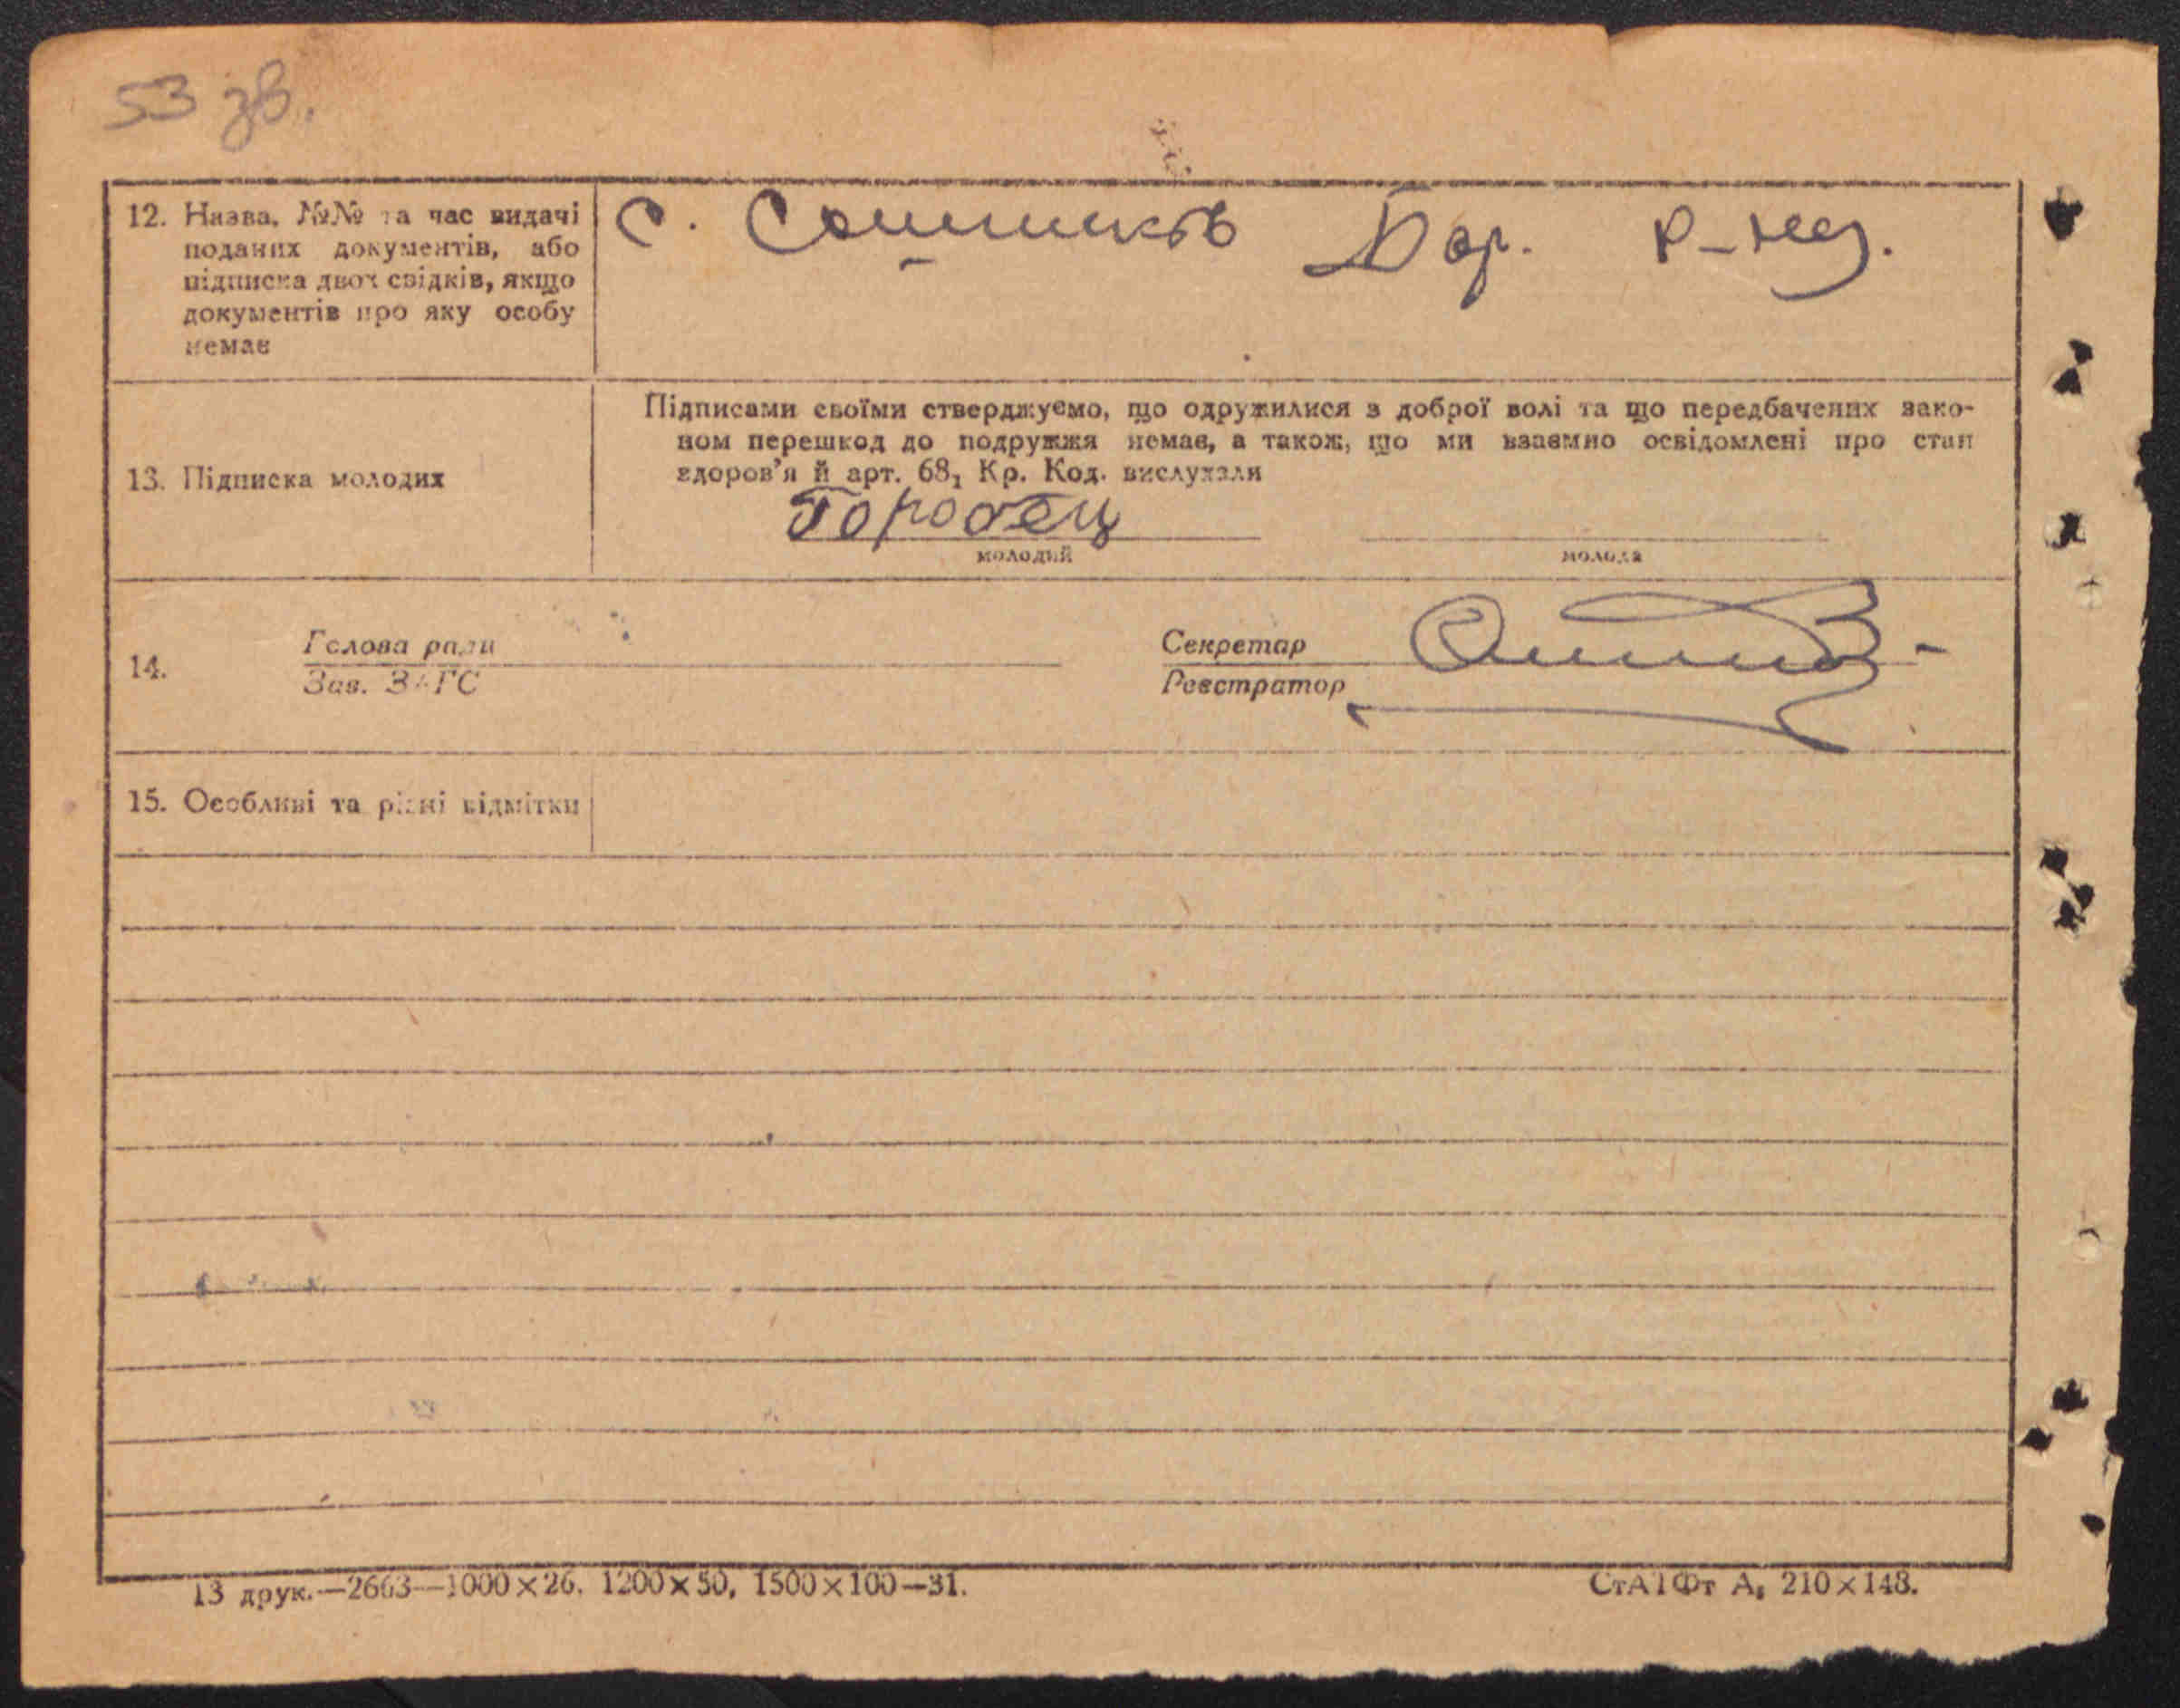 53 зв.
12. Назва, №№ та час видачі
поданих документів, або
підписка двох свідків, якщо
документів про яку особу
немає
с. Сошників Бор. р-ну.
13. Підписка молодих
Підписами своїми стверджуємо, що одружилися з доброї волі та що передбачених зако-
ном перешкод до подружжя немає, а також, що ми взаємно освідомлені про стан
здоров’я й арт. 68₁ Кр. Код. вислухали
Городец
молодий
молода
14.
Голова ради
Зав. ЗАГС
Секретар
Реєстратор
15. Особливі та різні відмітки
13 друк.—2663—1000×26. 1200×50, 1500×100—31.
СтАТФт А₅ 210×148.